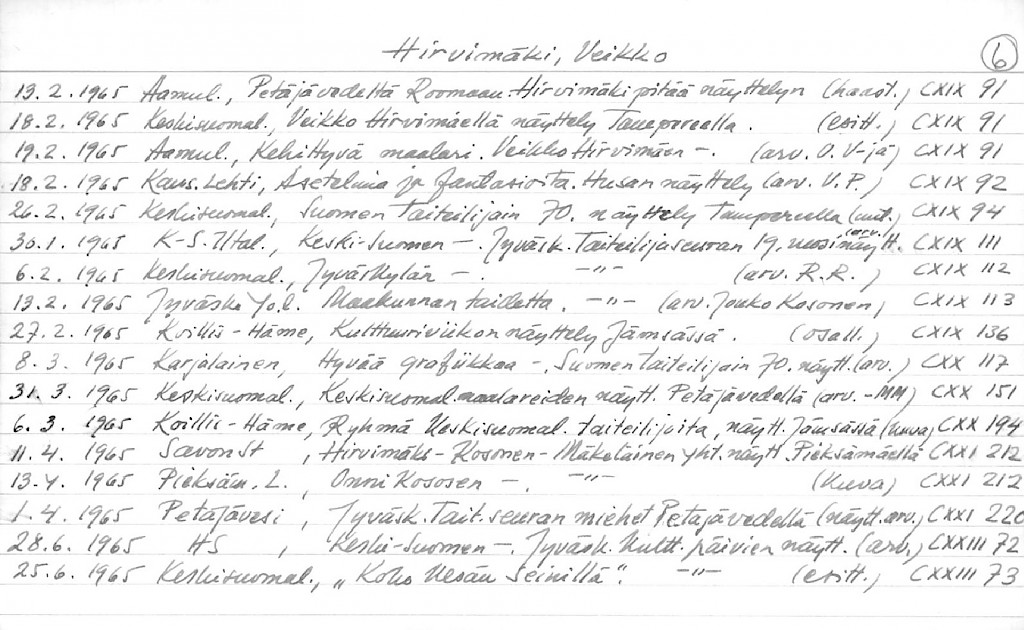 Hirvimäki, Veikko 6
13.2.1965 Aamul., Petäjävedeltä Roomaan. Hirvimäki pitää näyttelyn (haast.) CXIX 91
18.2.1965 Keskisuomal., Veikko Hirvimäellä näyttely Tampereella. (esitt.) CXIX 91
19.2.1965 Aamul., Kehittyvä maalari. Veikko Hirvimäen -. (arv. O.V-jä) CXIX 91
18.2.1965 Kans. Lehti, Asetelmia ja fantasioita. Husan näyttely (arv. V.P.) CXIX 92
26.2.1965 Keskisuomal., Suomen taiteilijain 70. näyttely Tampereella (uut.) CXIX 94
30.1.1965 K-S. Iltal., Keski-Suomen -. Jyväsk. Taiteilijaseuran 19. vuosinäytt. (arv.) CXIX 111
6.2.1965 Keskisuomal., Jyväskylän -. -"- (arv. R.R.) CXIX 112
13.2.1965 Jyväskylä Maakunnan taidetta. -"- (arv. Jouko Kosonen) CXIX 113
27.2.1965 Koillis-Häme, Kulttuuriviikon näyttely Jämsässä. (osall.) CXIX 136
8.3.1965 Karjalainen, Hyvää grafiikkaa -. Suomen taiteilijain 70. näytt. (arv.) CXX 117
31.3.1965 Keskisuomal., Keskisuomal. maalareiden näytt. Petäjävedellä (arv. -MM) CXX 151
6.3.1965 Koillis-Häme, Ryhmä keskisuomal. taiteilijoita, näytt. Jämsässä (kuva) CXX 194
11.4.1965 SavonSt, Hirvimäki-Kosonen-Mäkeläinen yht. näytt. Pieksämäellä CXXI 212
13.4.1965 Pieksäm. L., Onni Kososen -. -"- (kuva) CXXI 212
1.4.1965 Petäjävesi, Jyväsk. Tait. seuran miehet Petäjävedellä (näytt. arv.) CXXI 220
28.6.1965 HS, Keski-Suomen -. Jyväsk. Kultt. päivien näytt. (arv.) CXXIII 72
25.6.1965 Keskisuomal., "Koko kesän seinillä". -"- (esitt.) CXXIII 73